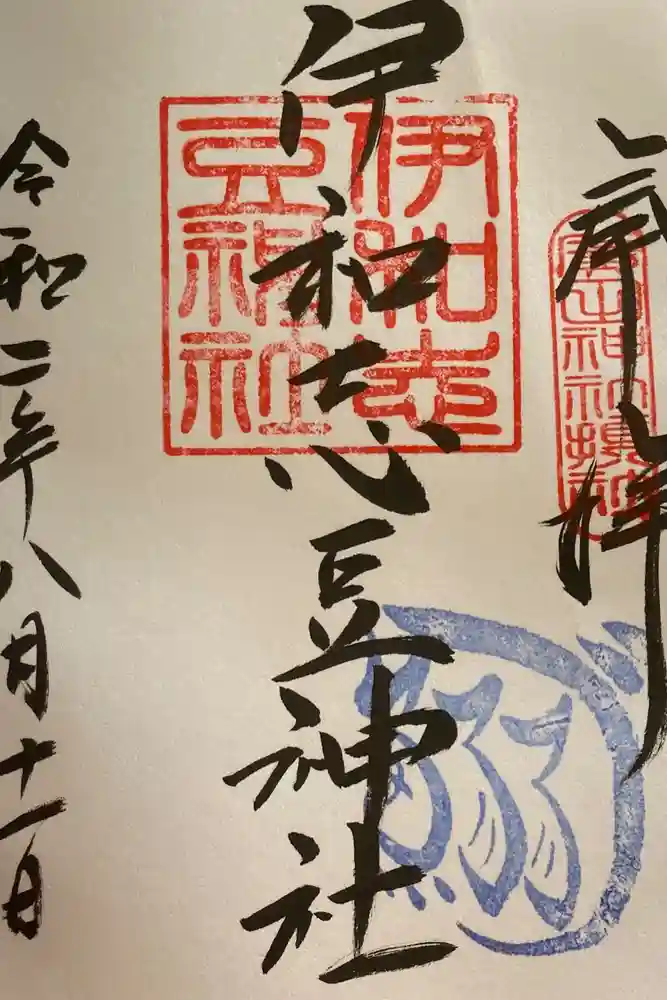 奉拝
伊和志豆神社
令和二年八月十一日
伊和志
豆神社
鰯